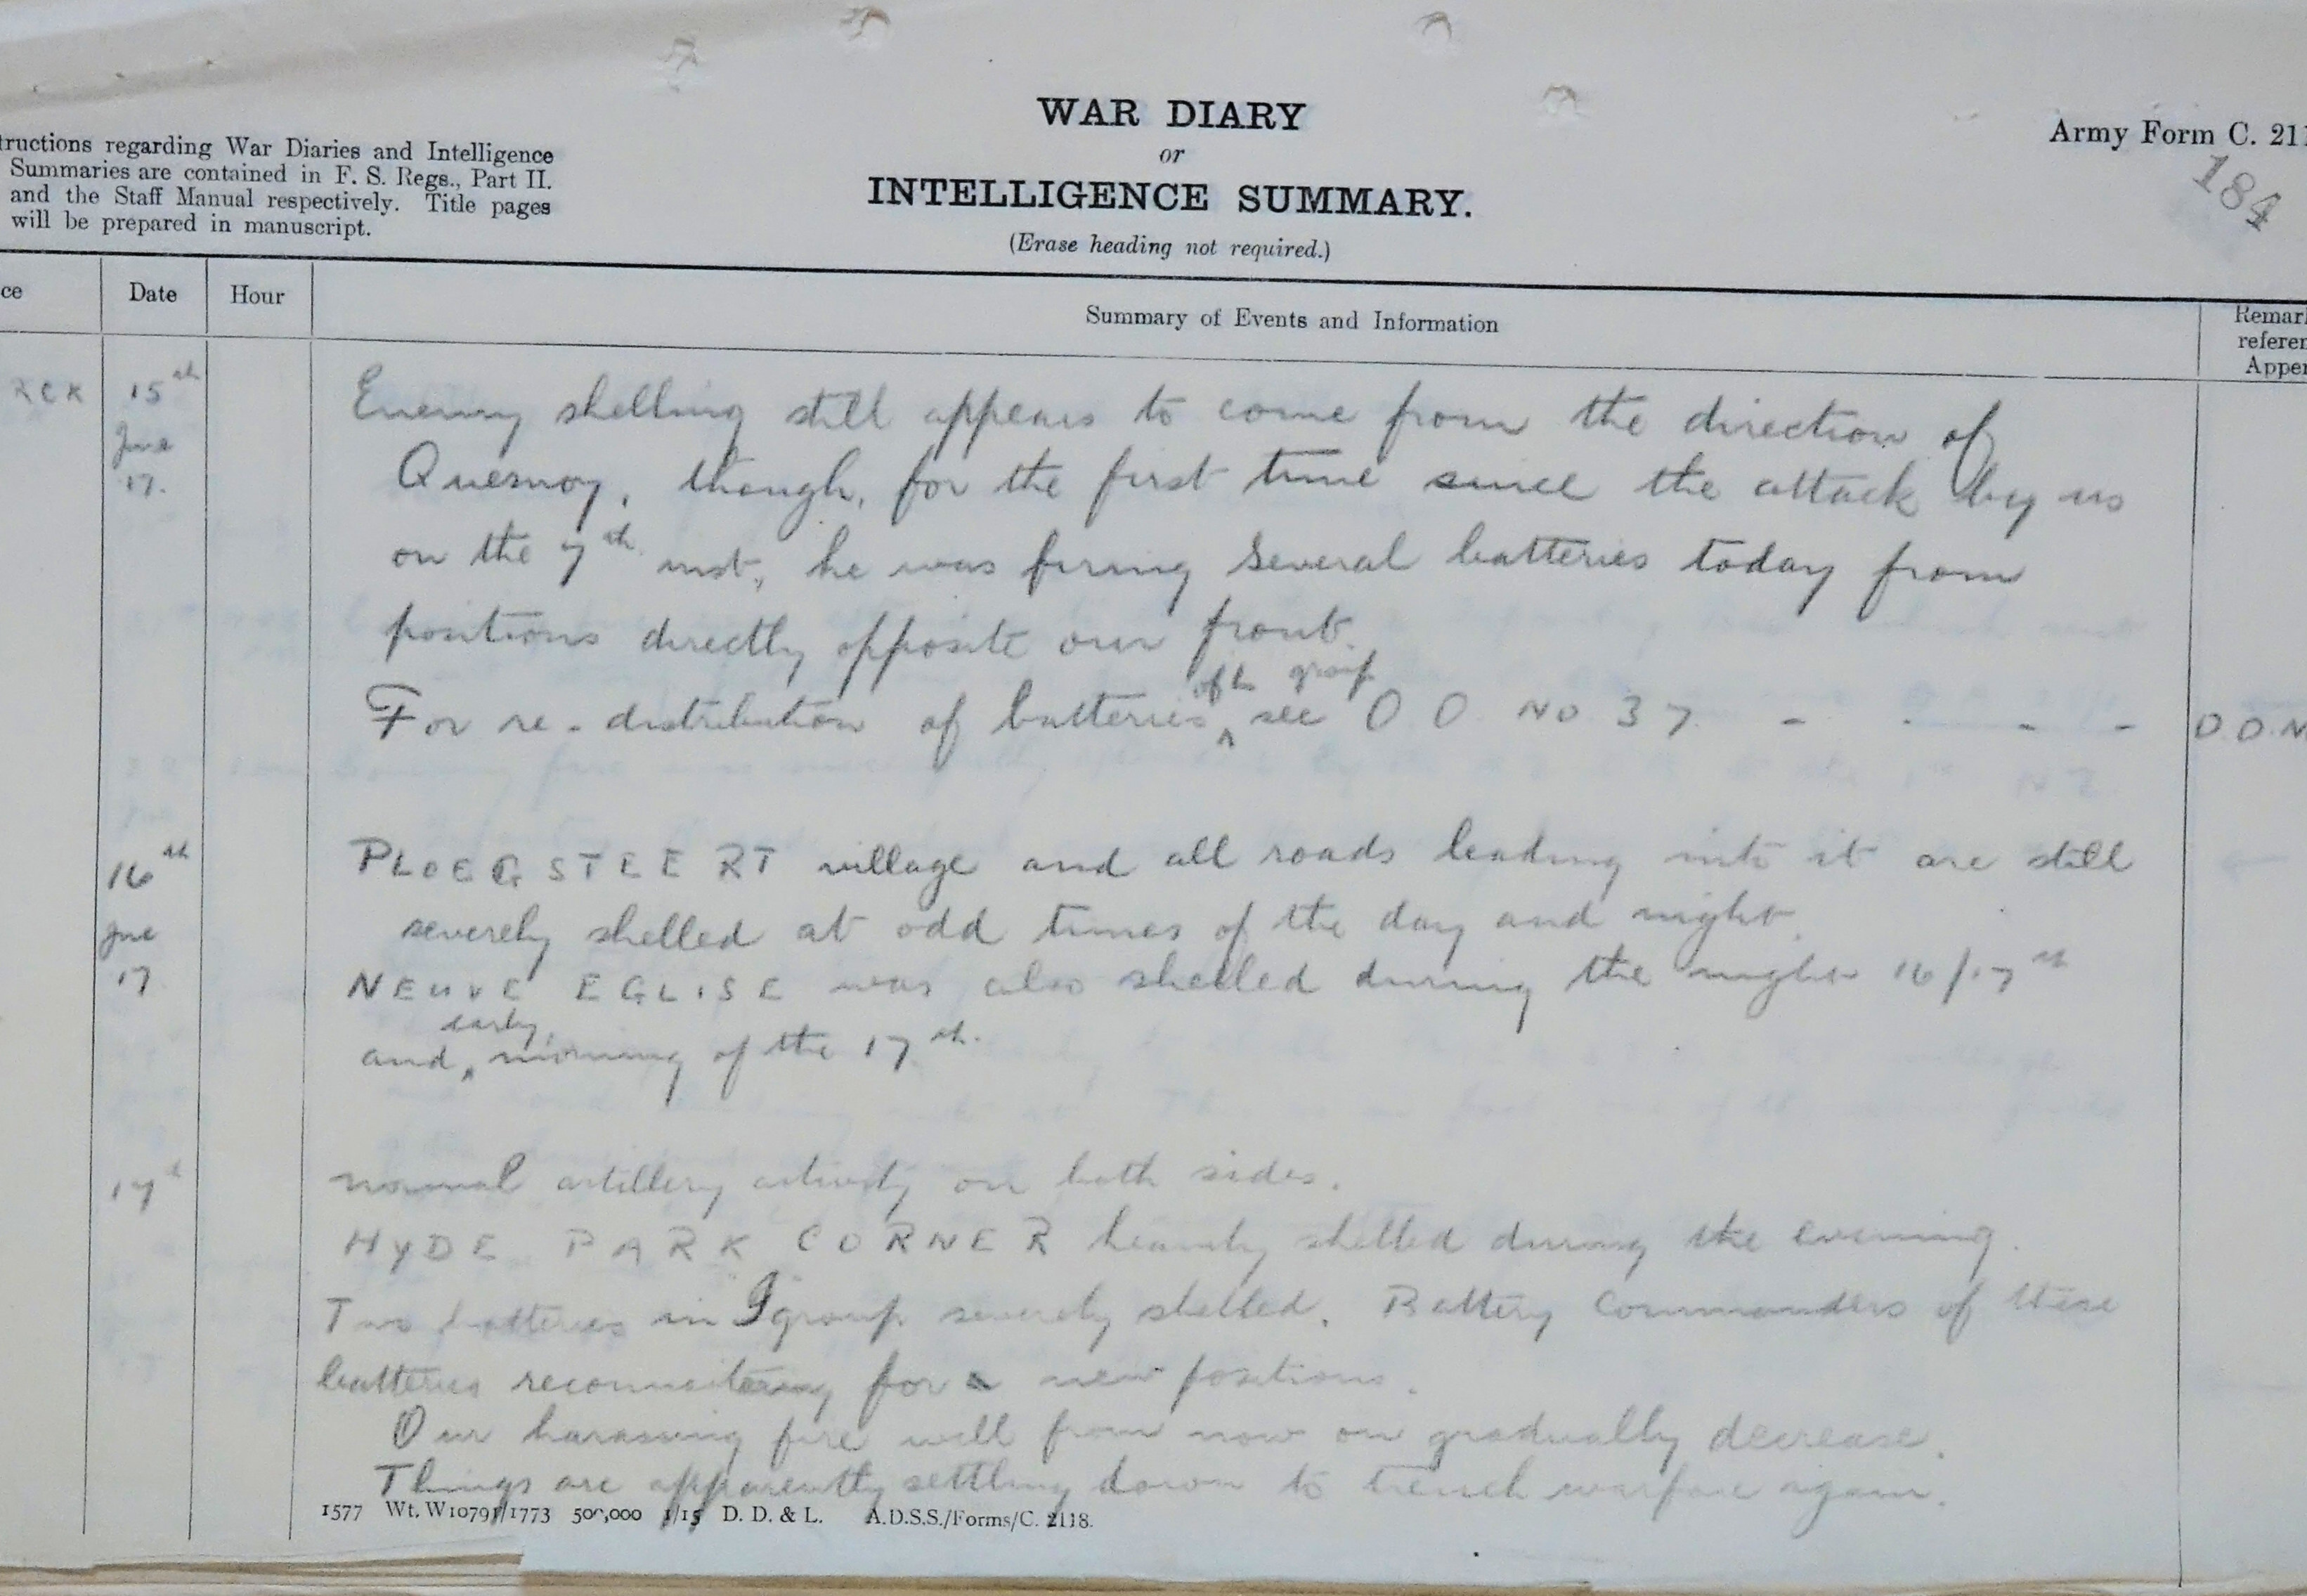 WAR DIARY
or
INTELLIGENCE SUMMARY.
(Erase heading not required.)
Army Form C. 211
184
tructions regarding War Diaries and Intelligence
Summaries are contained in F. S. Regs., Part II.
and the Staff Manual respectively. Title pages
will be prepared in manuscript.
ce Date Hour Summary of Events and Information Remar
referen
Appen
15th
June
17.
Enemy shelling still appears to come from the direction of
Quesnoy, though, for the first time since the attack by us
on the 7th inst, he was firing several batteries today from
positions directly opposite our front.
of th group
For re-distribution of batteries ^ see O O NO 37 - - - - O.O.N
16th
June
17
PLOEGSTEERT village and all roads leading into it are still
severely shelled at odd times of the day and night.
NEUVE EGLISE was also shelled during the night 16/17th
early
and ^ morning of the 17th.
17th
normal artillery activity on both sides.
HYDE PARK CORNER heavily shelled during the evening.
Two batteries in group severely shelled. Battery Commanders of these
batteries reconnoitering for new positions.
Our harassing fire will from now on gradually decrease.
Things are apparently settling down to trench warfare again.
1577 Wt. W10791/1773 500,000 1/15 D. D. & L. A.D.S.S./Forms/C. 2118.